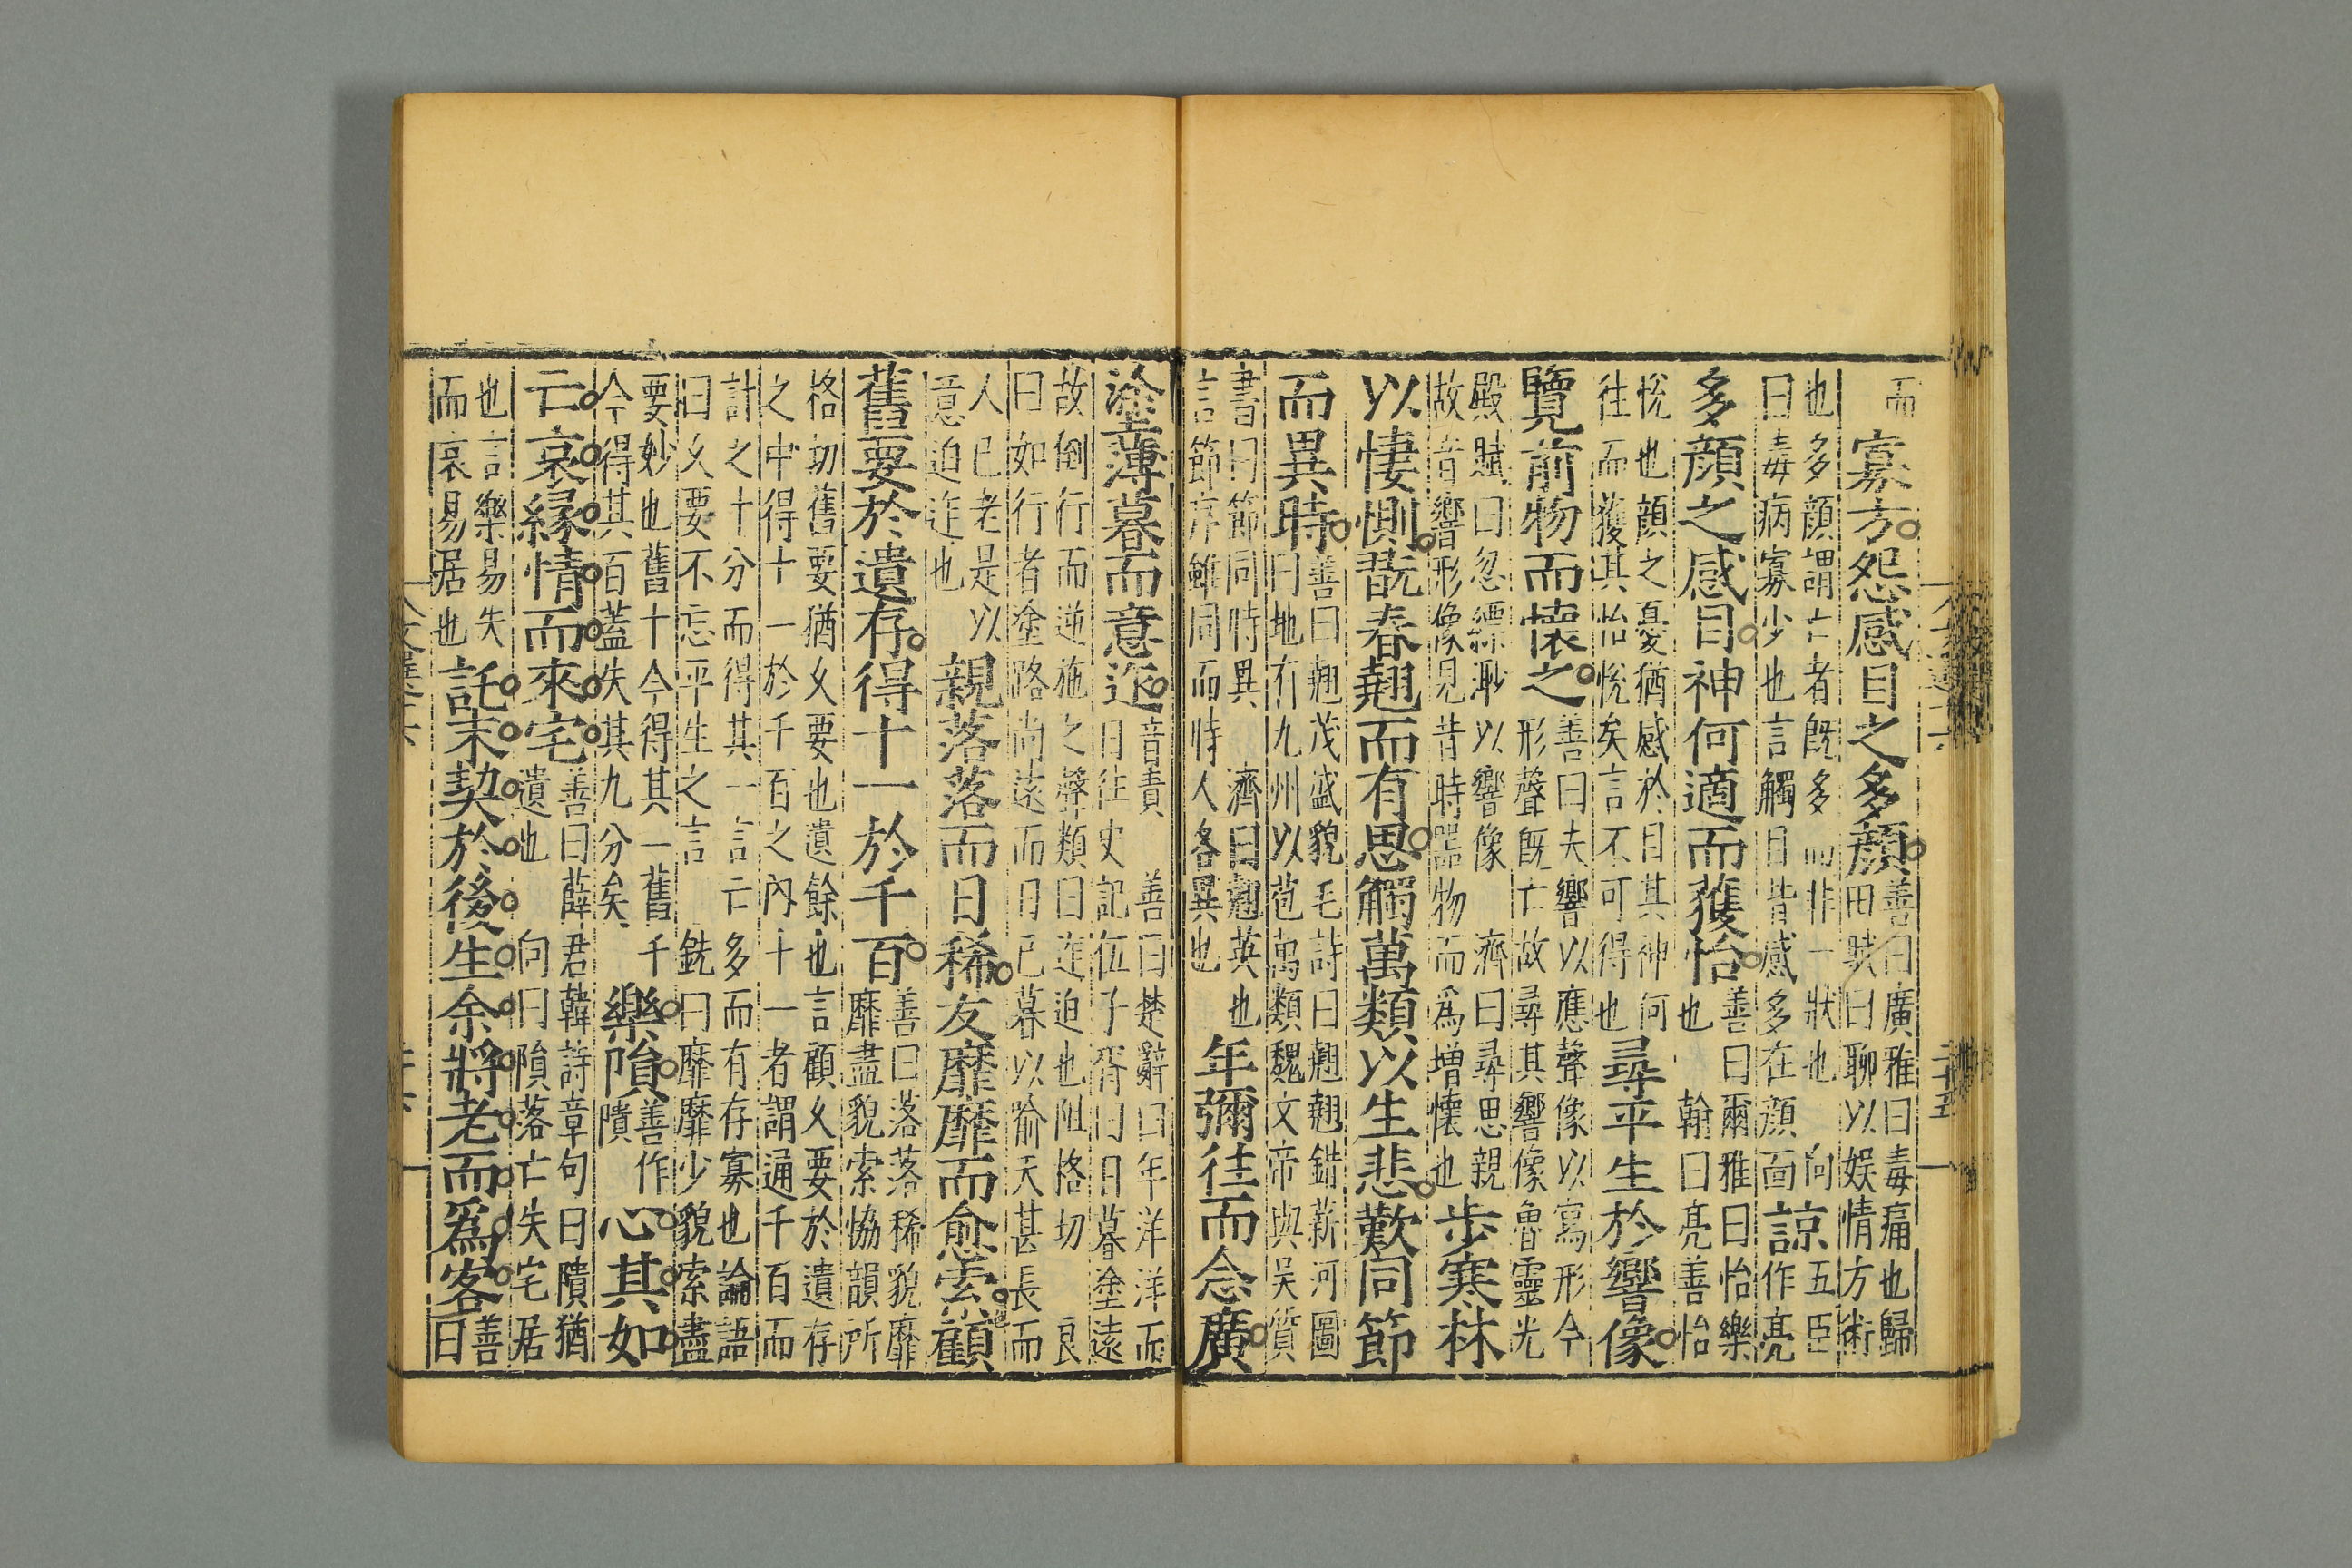 而寡方怨感目之多顔善曰廣雅曰毒痛也歸田賦曰聊以娱情方術
也多顔謂亡者既多而非一狀也 向曰毒病寡少也言觸目皆感多在顔面諒五臣作亮
多顔之感目神何適而獲怡善曰爾雅曰怡樂也 翰曰亮善怡
悦也顔之憂猶感於目其神何往而獲其怡悦矣言不可得也尋平生於響像
覽前物而懷之善曰夫響以應聲像以寫形今形聲既亡故尋其響像魯靈光
殿賦曰忽縹眇以響像 濟曰尋思親故音響形像見昔時器物而爲增懷也步寒林
以悽惻翫春翹而有思觸萬類以生悲歎同節
而異時善曰翹茂盛貌毛詩曰翹翹錯薪河圖曰地有九州以苞萬類魏文帝與吴質
書曰節同時異 濟曰翹英也言節序雖同而時人各異也年彌往而念廣
塗薄暮而意迮音責 善曰楚辭曰年洋洋而日往史記伍子胥曰日暮塗遠
故倒行而逆施之聲類曰迮迫也阻格切 良曰如行者塗路尚遠而日已暮以喻天甚長而
人已老是以意迫迮也親落落而日稀友靡靡而愈索顧
舊要於遺存得十一於千百善曰落落稀貌靡靡盡貌索協韻所
格切舊要猶乆要也遺餘也言顧乆要於遺存之中得十一於千百之内十一者謂通千百而
計之十分而得其一言亡多而有存寡也論語曰乆要不忘平生之言 銑曰靡靡少貌索盡
要妙也舊十今得其一舊千今得其百蓋失其九分矣樂隤善作隤心其如
亡哀縁情而來宅善曰薛君韓詩章句曰隤猶遺也 向曰隤落亡失宅居
也言樂易失而哀易居也託末契於後生余將老而爲客善曰